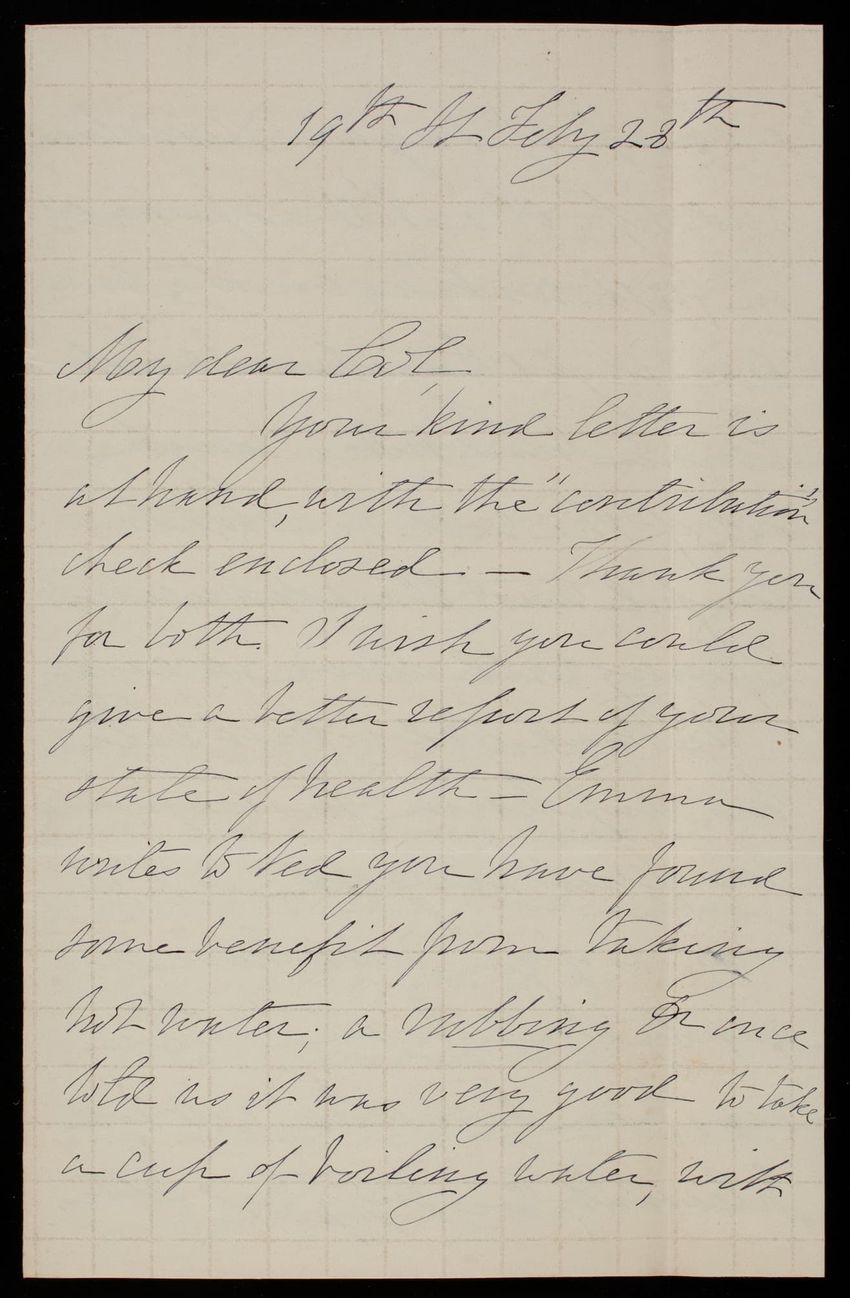 19th St Feby 28th
My dear Col,
Your kind letter is
at hand, with the "contribution"
check enclosed — Thank you
for both. I wish you could
give a better report of your
state of health — Emma
writes to Ned you have found
some benefit from taking
hot water; a rubbing Dr once
told us it was very good to take
a cup of boiling water, with